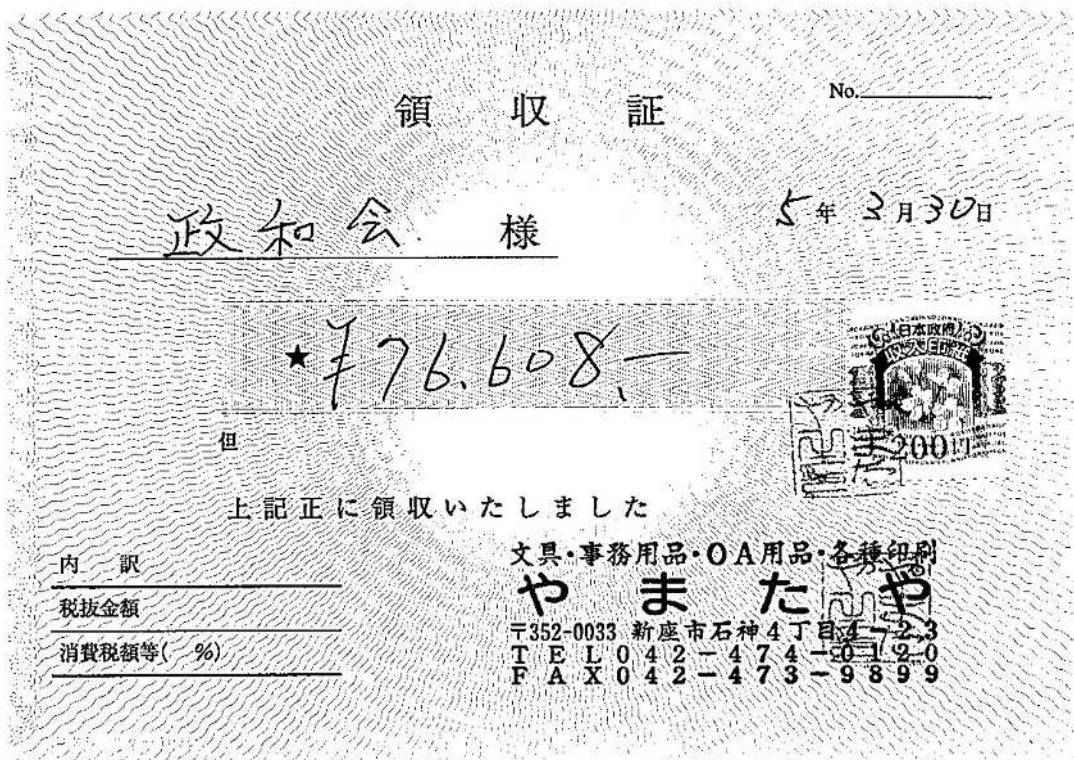 領収証
No.
政和会 様
5年3月30日
★¥76.608.-
日本政府
200円
但
上記正に領収いたしました
内訳
税抜金額
消費税額等( %)
文具・事務用品・OA用品・各種印刷
やまたや
〒352-0033 新座市石神4丁目4-23
TEL042-474-0120
FAX042-473-9899